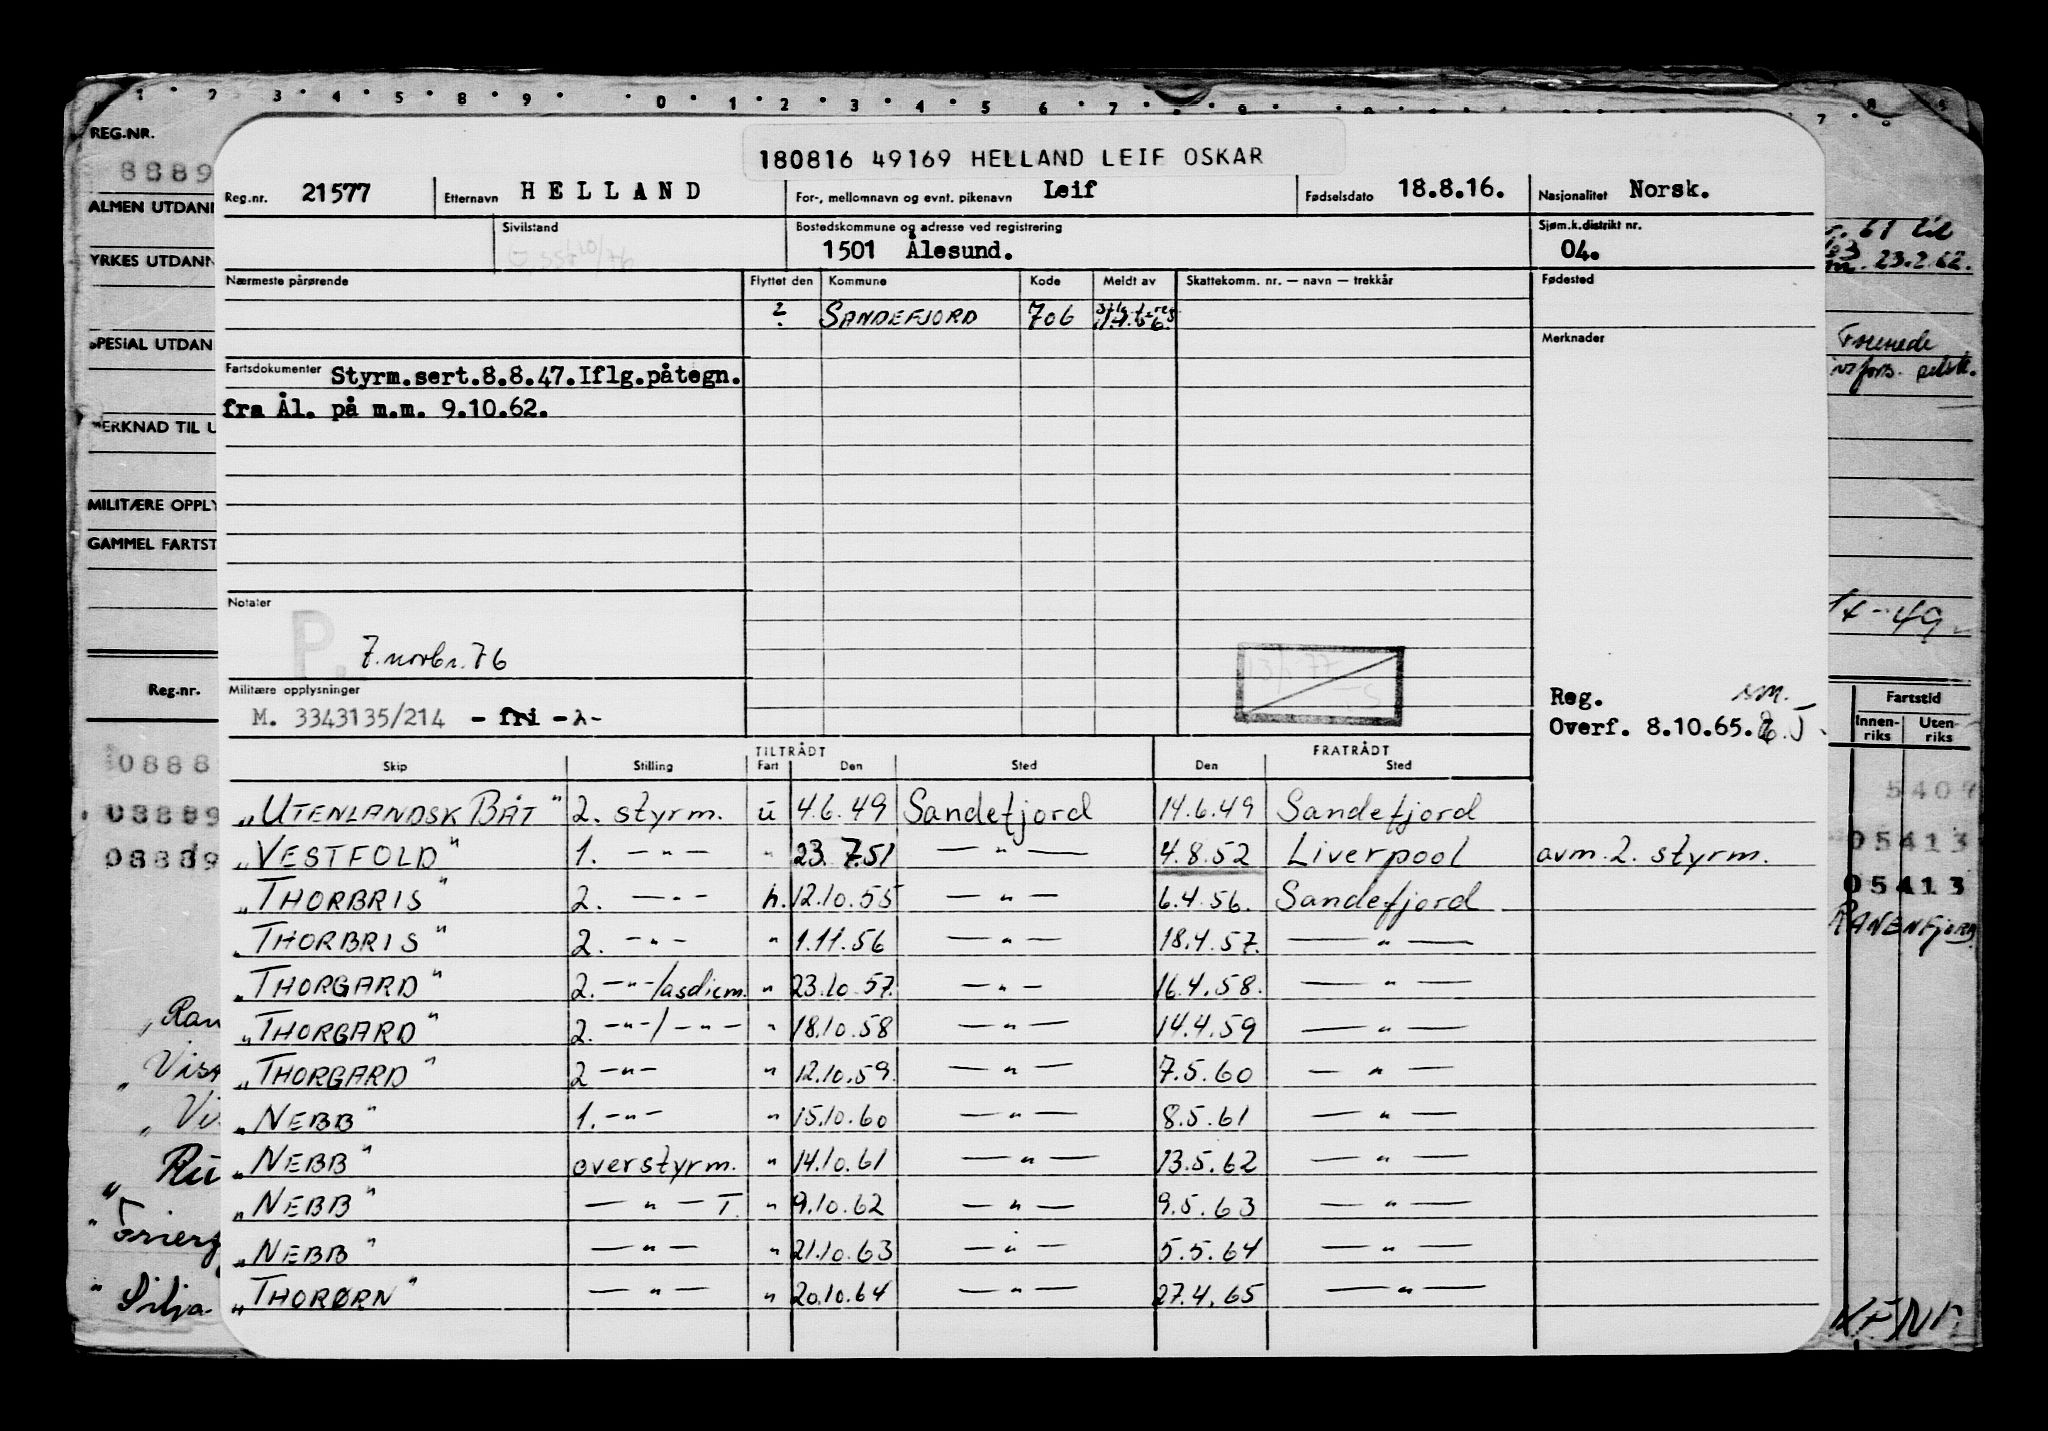 1 2 3 4 5 8 9 0 1 2 3 4 5 6 7 9
REG.NR.
8889
ALMEN UTDAN
YRKES UTDANN
SPESIAL UTDAN
MERKNAD TIL U
MILITÆRE OPPLY
GAMMEL FARTST
Reg.nr.
0888
08889
08889
„Ran
„Visa
„Vi
„Ru
"Frierg
"Silja
180816 49169 HELLAND LEIF OSKAR
Reg.nr. 21577 Etternavn HELLAND For-, mellomnavn og evnt. pikenavn Leif Fødselsdato 18.8.16. Nasjonalitet Norsk.
Sivilstand Bostedskommune og adresse ved registrering Sjøm.k.distrikt nr.
1501 Ålesund. 04.
Nærmeste pårørende Flyttet den Kommune Kode Meldt av Skattekomm. nr. — navn — trekkår Fødested
? SANDEFJORD 706
Merknader
Fartsdokumenter Styrm.sert.8.8.47.Iflg.påtegn.
fra Ål. på m.m. 9.10.62.
Notater
P.
7.novbr.76
Militære opplysninger
M. 3343135/214 - fri -2-
Reg. sm.
Overf. 8.10.65.
TILTRÅDT FRATRÅDT
Skip Stilling Fart Den Sted Den Sted
„UTENLANDSK BÅT" 2. styrm. u 4.6.49 Sandefjord 14.6.49 Sandefjord
„VESTFOLD" 1. — " — " 23.7.51 — " — 4.8.52 Liverpool avm. 2. styrm.
„THORBRIS" 2. — " — h. 12.10.55 — " — 6.4.56. Sandefjord
„THORBRIS" 2. — " — " 1.11.56 — " — 18.4.57. — " —
„THORGARD" 2. — " — /asdicm. " 23.10.57. — " — 16.4.58. — " —
„THORGARD" 2. — " — / — " — " 18.10.58 — " — 14.4.59 — " —
„THORGARD" 2 — " — " 12.10.59. — " — 7.5.60 — " —
„NEBB" 1. — " — " 15.10.60 — " — 8.5.61 — " —
„NEBB" overstyrm. " 14.10.61 — " — 13.5.62 — " —
„NEBB" — " — T. " 9.10.62 — " — 9.5.63 — " —
„NEBB" — " — " 21.10.63 — " — 5.5.64 — " —
„THORØRN" — " — " 20.10.64 — " — 27.4.65 — " —
61 til
23.2.62.
49
Fartstid
Innen-riks Uten-riks
5409
05413
05413
RANENFJORD